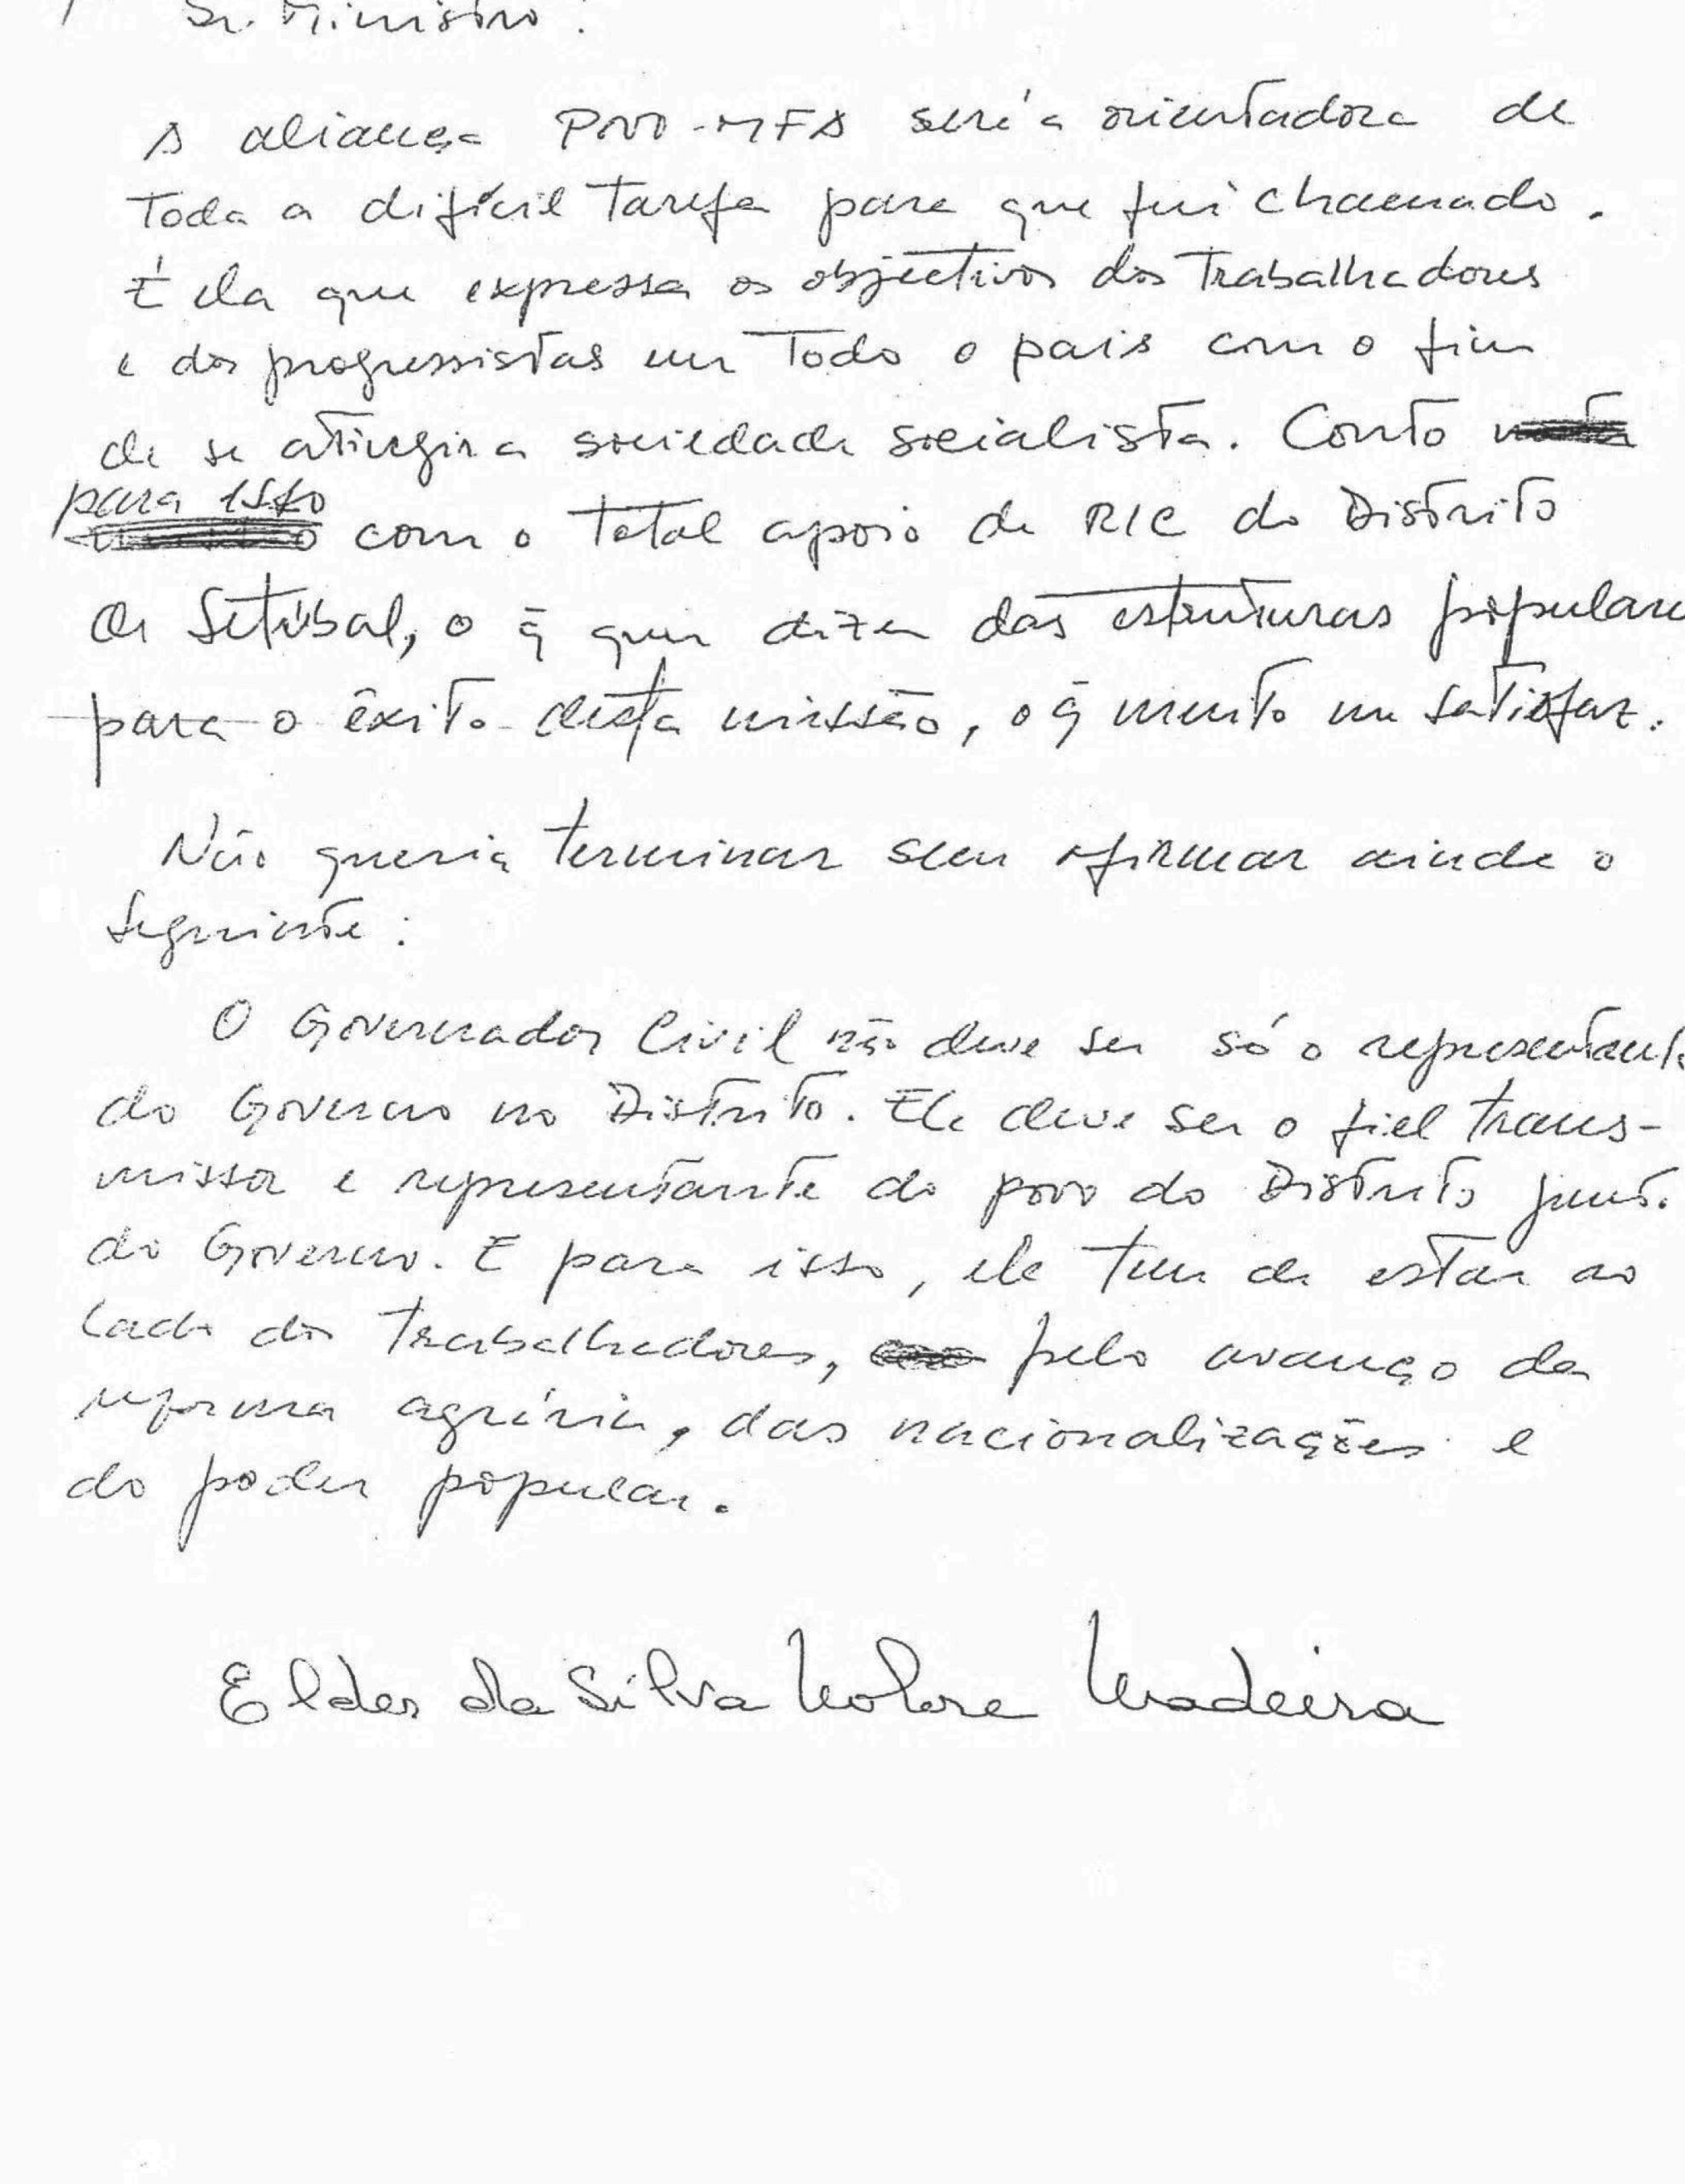 Sr. Ministro:
A aliança POVO-MFA será a orientadora de
Toda a difícil Tarefa para que fui chamado.
É ela que expressa os objectivos dos Trabalhadores
e dos progressistas em Todo o país com o fim
de se atingir a sociedade socialista. Conto
para isto
com o total apoio de RIC do Distrito
de Setúbal, o q̃ quer dizer das estruturas populares
para o êxito desta missão, o q̃ muito me satisfaz.
Não queria terminar sem afirmar ainda o
seguinte:
O Governador Civil não deve ser só o representante
do Governo no Distrito. Ele deve ser o fiel trans-
missor e representante do povo do Distrito junto
do Governo. E para isso, ele tem de estar ao
lado dos trabalhadores, pelo avanço da
reforma agrária, das nacionalizações e
do poder popular.
Elder da Silva Nobre Madeira